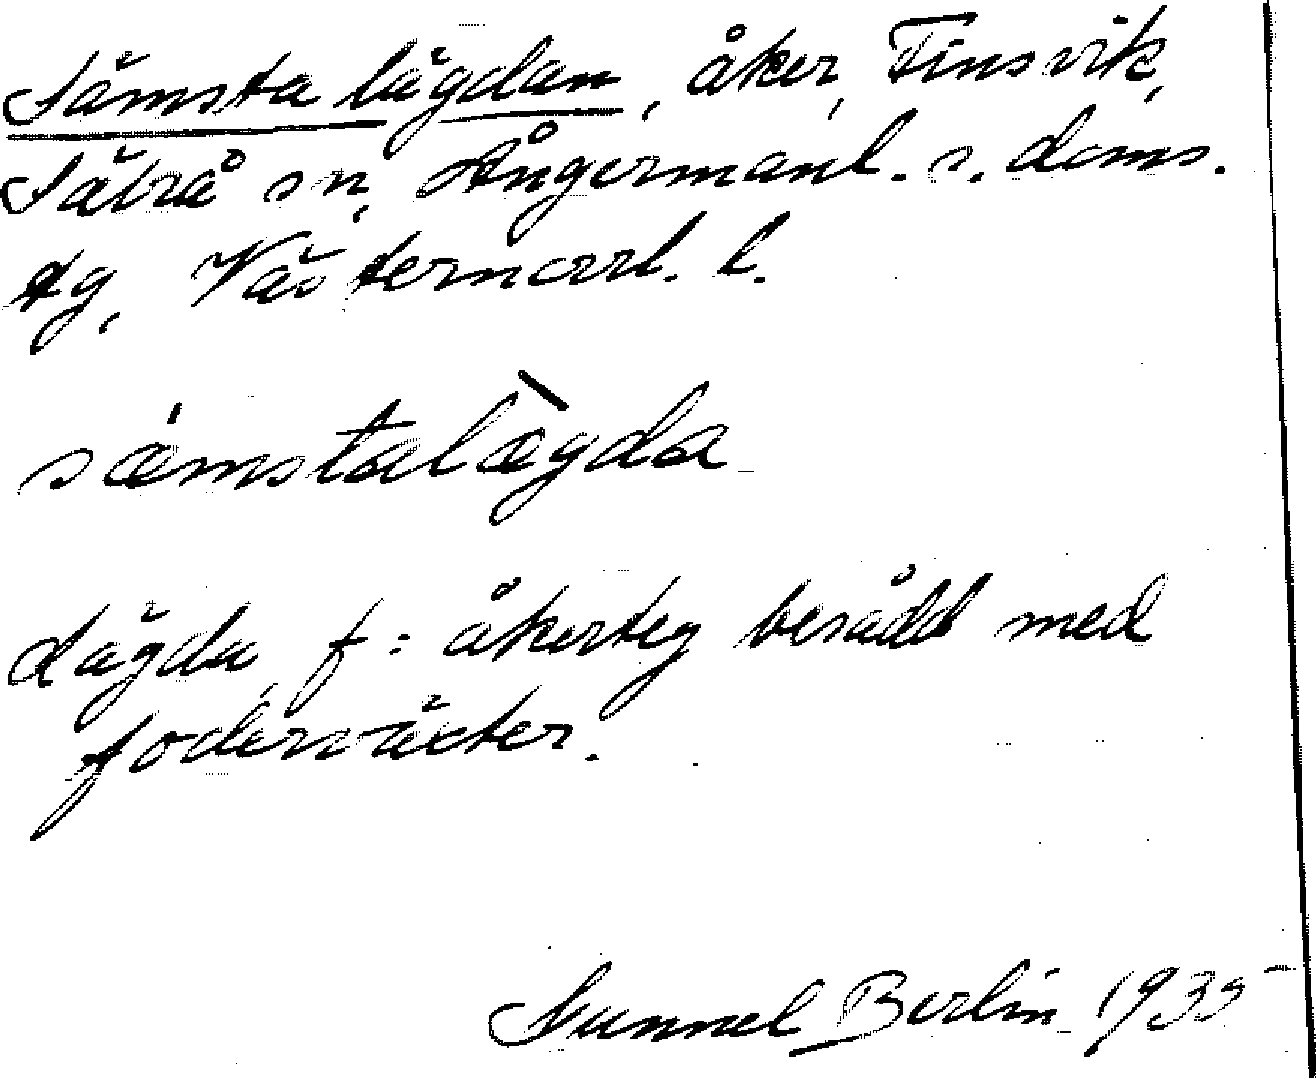 Sämsta lägdan, åker, Finsvik,
Säbrå sn, Ångermanl. s. doms.
tg, Västernorrl. l.
sæmstalægda
Lägda f: åkerteg besådd med
foderväxter.
Gunnel Berlin 1935